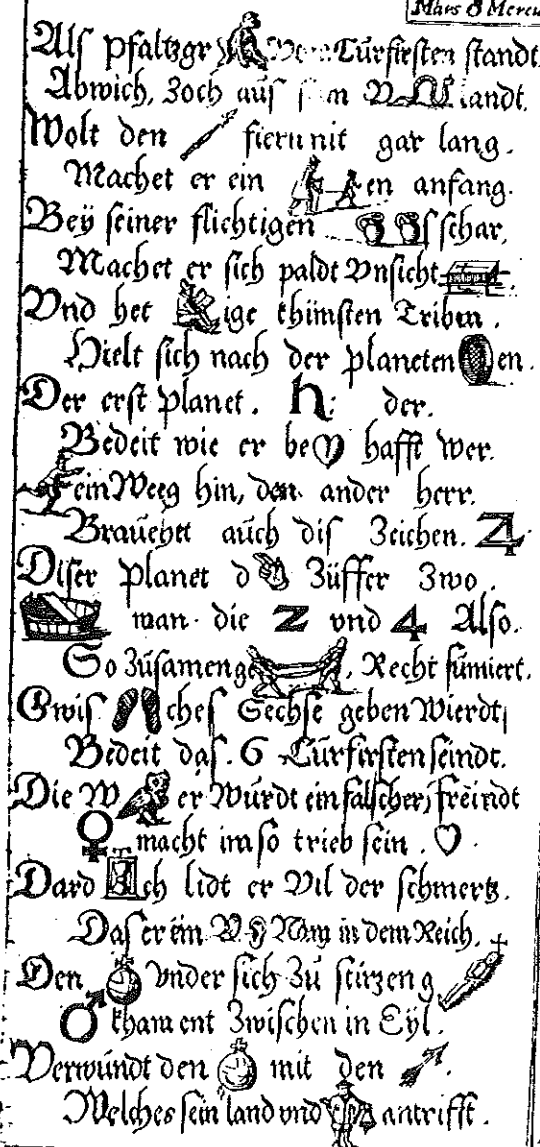 Mars ♂ Mercu
Als Pfaltzgr Vom Cürfirsten standt
Abwich, Zoch auß landt.
Wolt den fiern nit gar lang.
Machet er ein en anfang.
Beÿ seiner flichtigen sschar,
Machet er sich paldt Vnsicht
Vnd het ige thimsten Triben.
Hielt sich nach der planeten en.
Der erst planet. h: der.
Bedeit wie er be hafft wer.
ein Weeg hin, den ander herr.
Brauchet auch dis Zeichen. 4
Diser planet d Züffer Zwo.
man die 2 vnd 4 Also.
So Züsamenge, Recht sumiert.
Gwis ches Sechse geben Wierdt,
Bedeit das. 6 Cürfirsten seindt.
Die W er Würdt ein falscher freindt
♀ macht im so trieb sein ♡.
Dard ch lidt er Vil der schmertz.
Das er ein Nam in dem Reich.
Den Vnder sich Zu stürzen g
♂ kham ent Zwischen in Eÿl.
Verwundt den mit den
Welches sein land vnd antrifft.